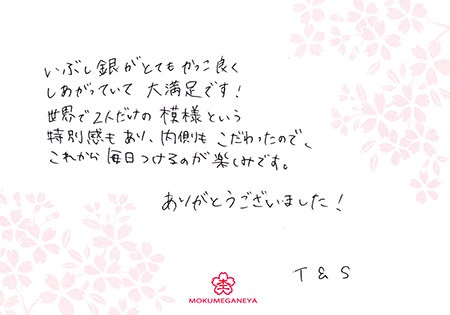 いぶし銀がとてもかっこ良く
しあがっていて 大満足です!
世界で2人だけの 模様という
特別感もあり、内側も こだわったので、
これから 毎日つけるのが 楽しみです。
ありがとうございました!
T & S
MOKUMEGANEYA